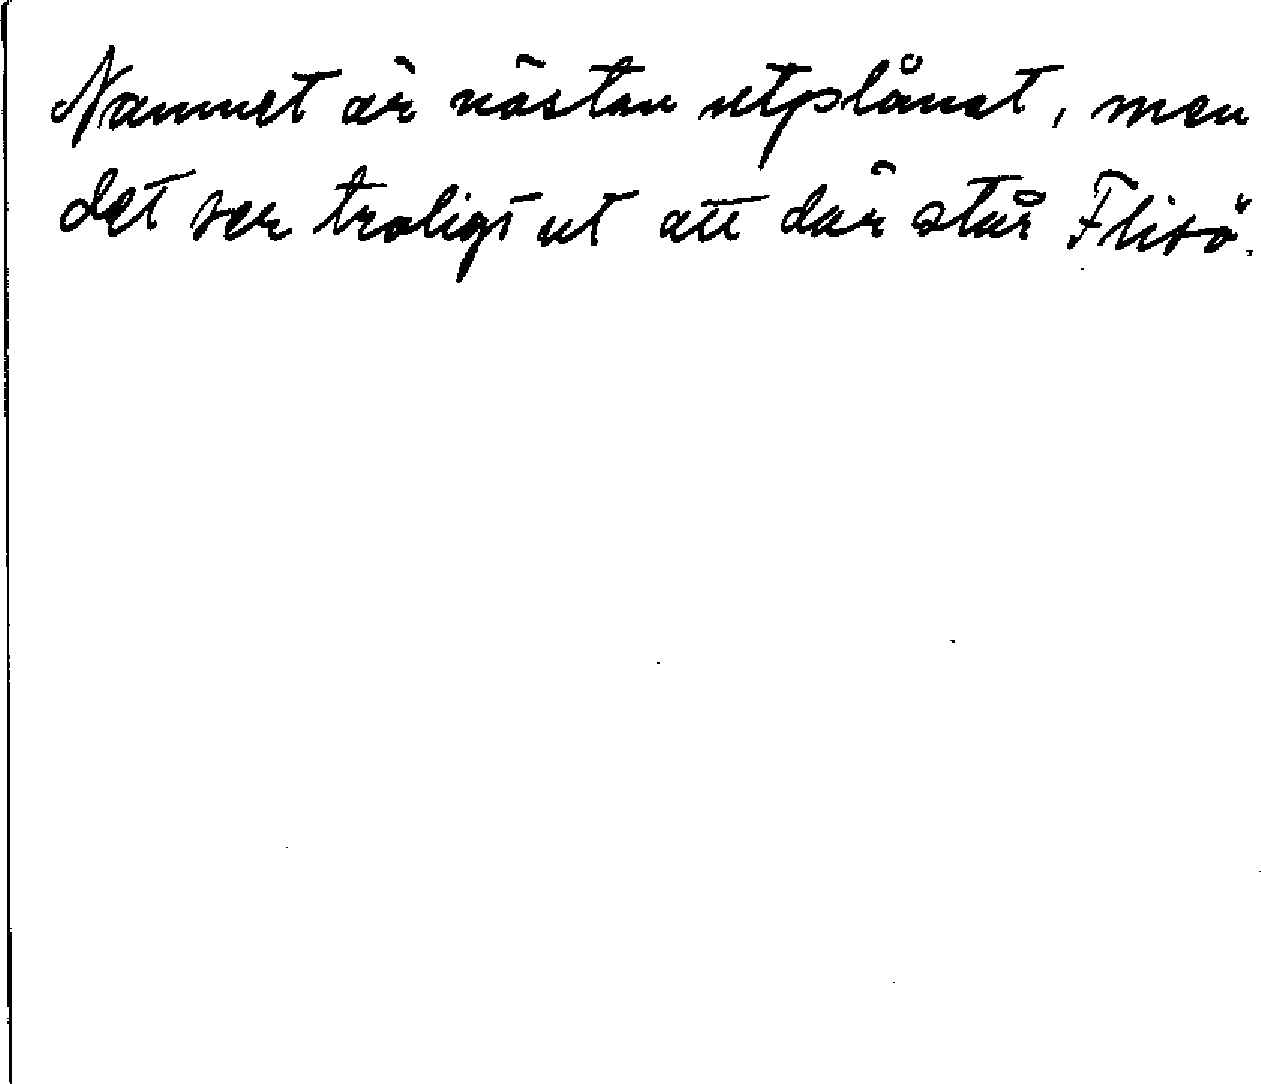 Namnet är nästan utplånat, men
det ser troligt ut att där står Flisö.